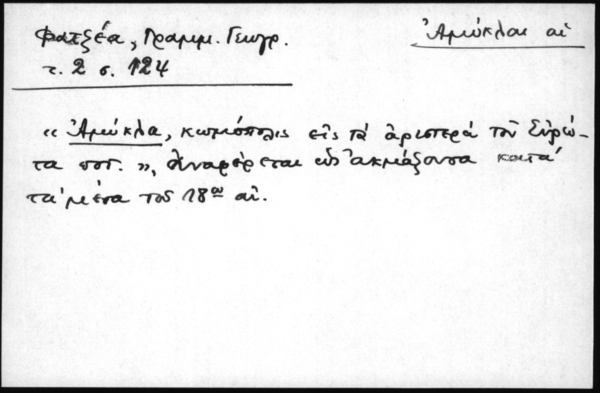 Ἀμύκλαι αἱ
Φατζέα, Γραμμ. Γεωγρ.
τ. 2 σ. 124
« Ἀμύκλα, κωμόπολις εἰς τά ἀριστερά τοῦ Εὐρώ-
τα ποτ. », ἀναφέρεται ὡς ἀκμάζουσα κατά
τά μέσα τοῦ 18ου αἰ.